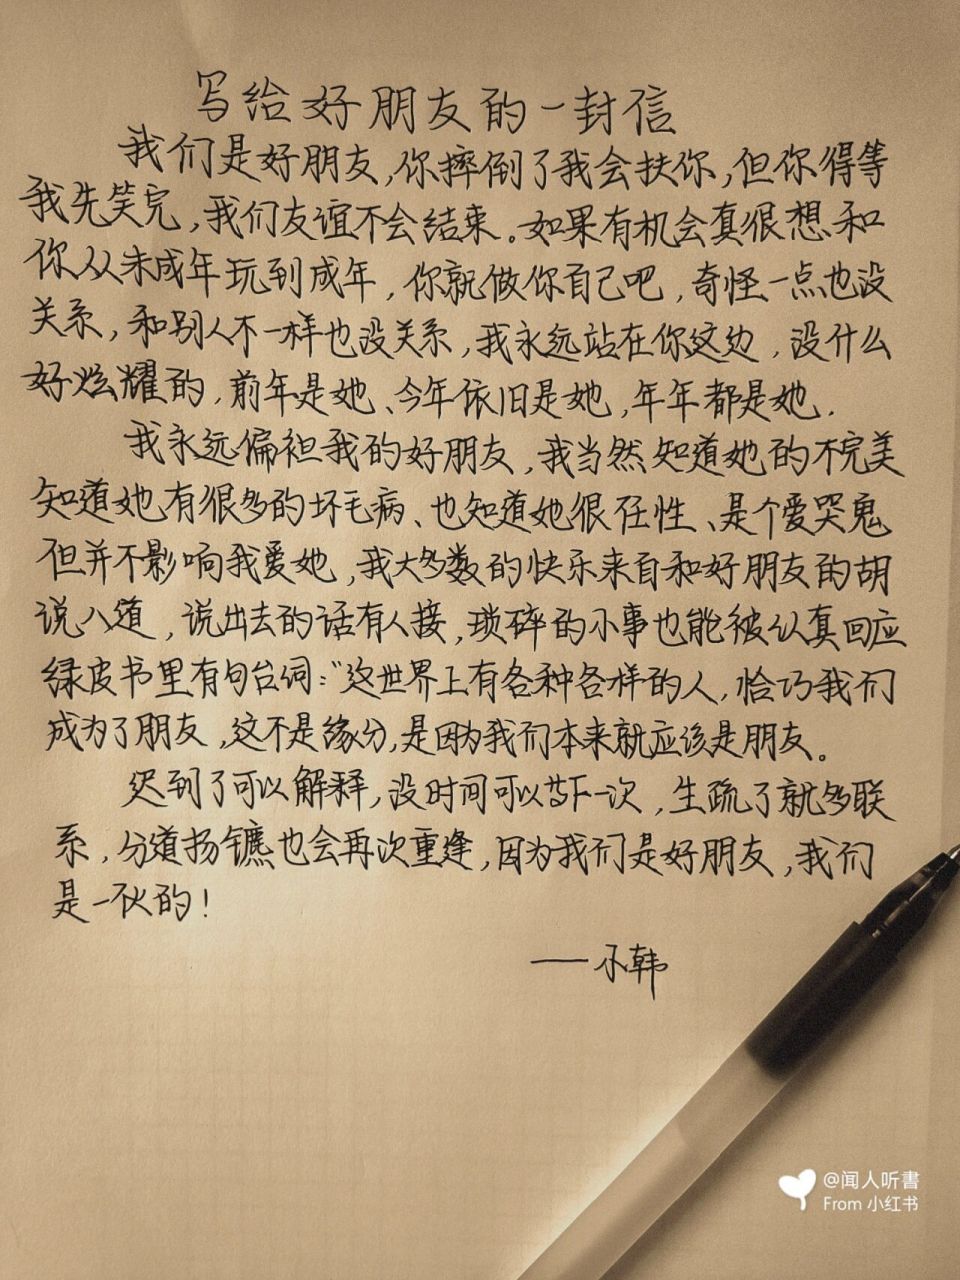 写给好朋友的一封信
我们是好朋友,你摔倒了我会扶你,但你得等
我先笑完,我们友谊不会结束。如果有机会真很想和
你从未成年玩到成年,你就做你自己吧,奇怪一点也没
关系,和别人不一样也没关系,我永远站在你这边,没什么
好炫耀的,前年是她、今年依旧是她,年年都是她.
我永远偏袒我的好朋友,我当然知道她的不完美
知道她有很多的坏毛病、也知道她很任性、是个爱哭鬼
但并不影响我爱她,我大多数的快乐来自和好朋友的胡
说八道,说出去的话有人接,琐碎的小事也能被认真回应
绿皮书里有句台词:"这世界上有各种各样的人,恰巧我们
成为了朋友,这不是缘分,是因为我们本来就应该是朋友。
迟到了可以解释,没时间可以下一次,生疏了就多联
系,分道扬镳也会再次重逢,因为我们是好朋友,我们
是一伙的!
——小韩
@闻人听書
From 小红书